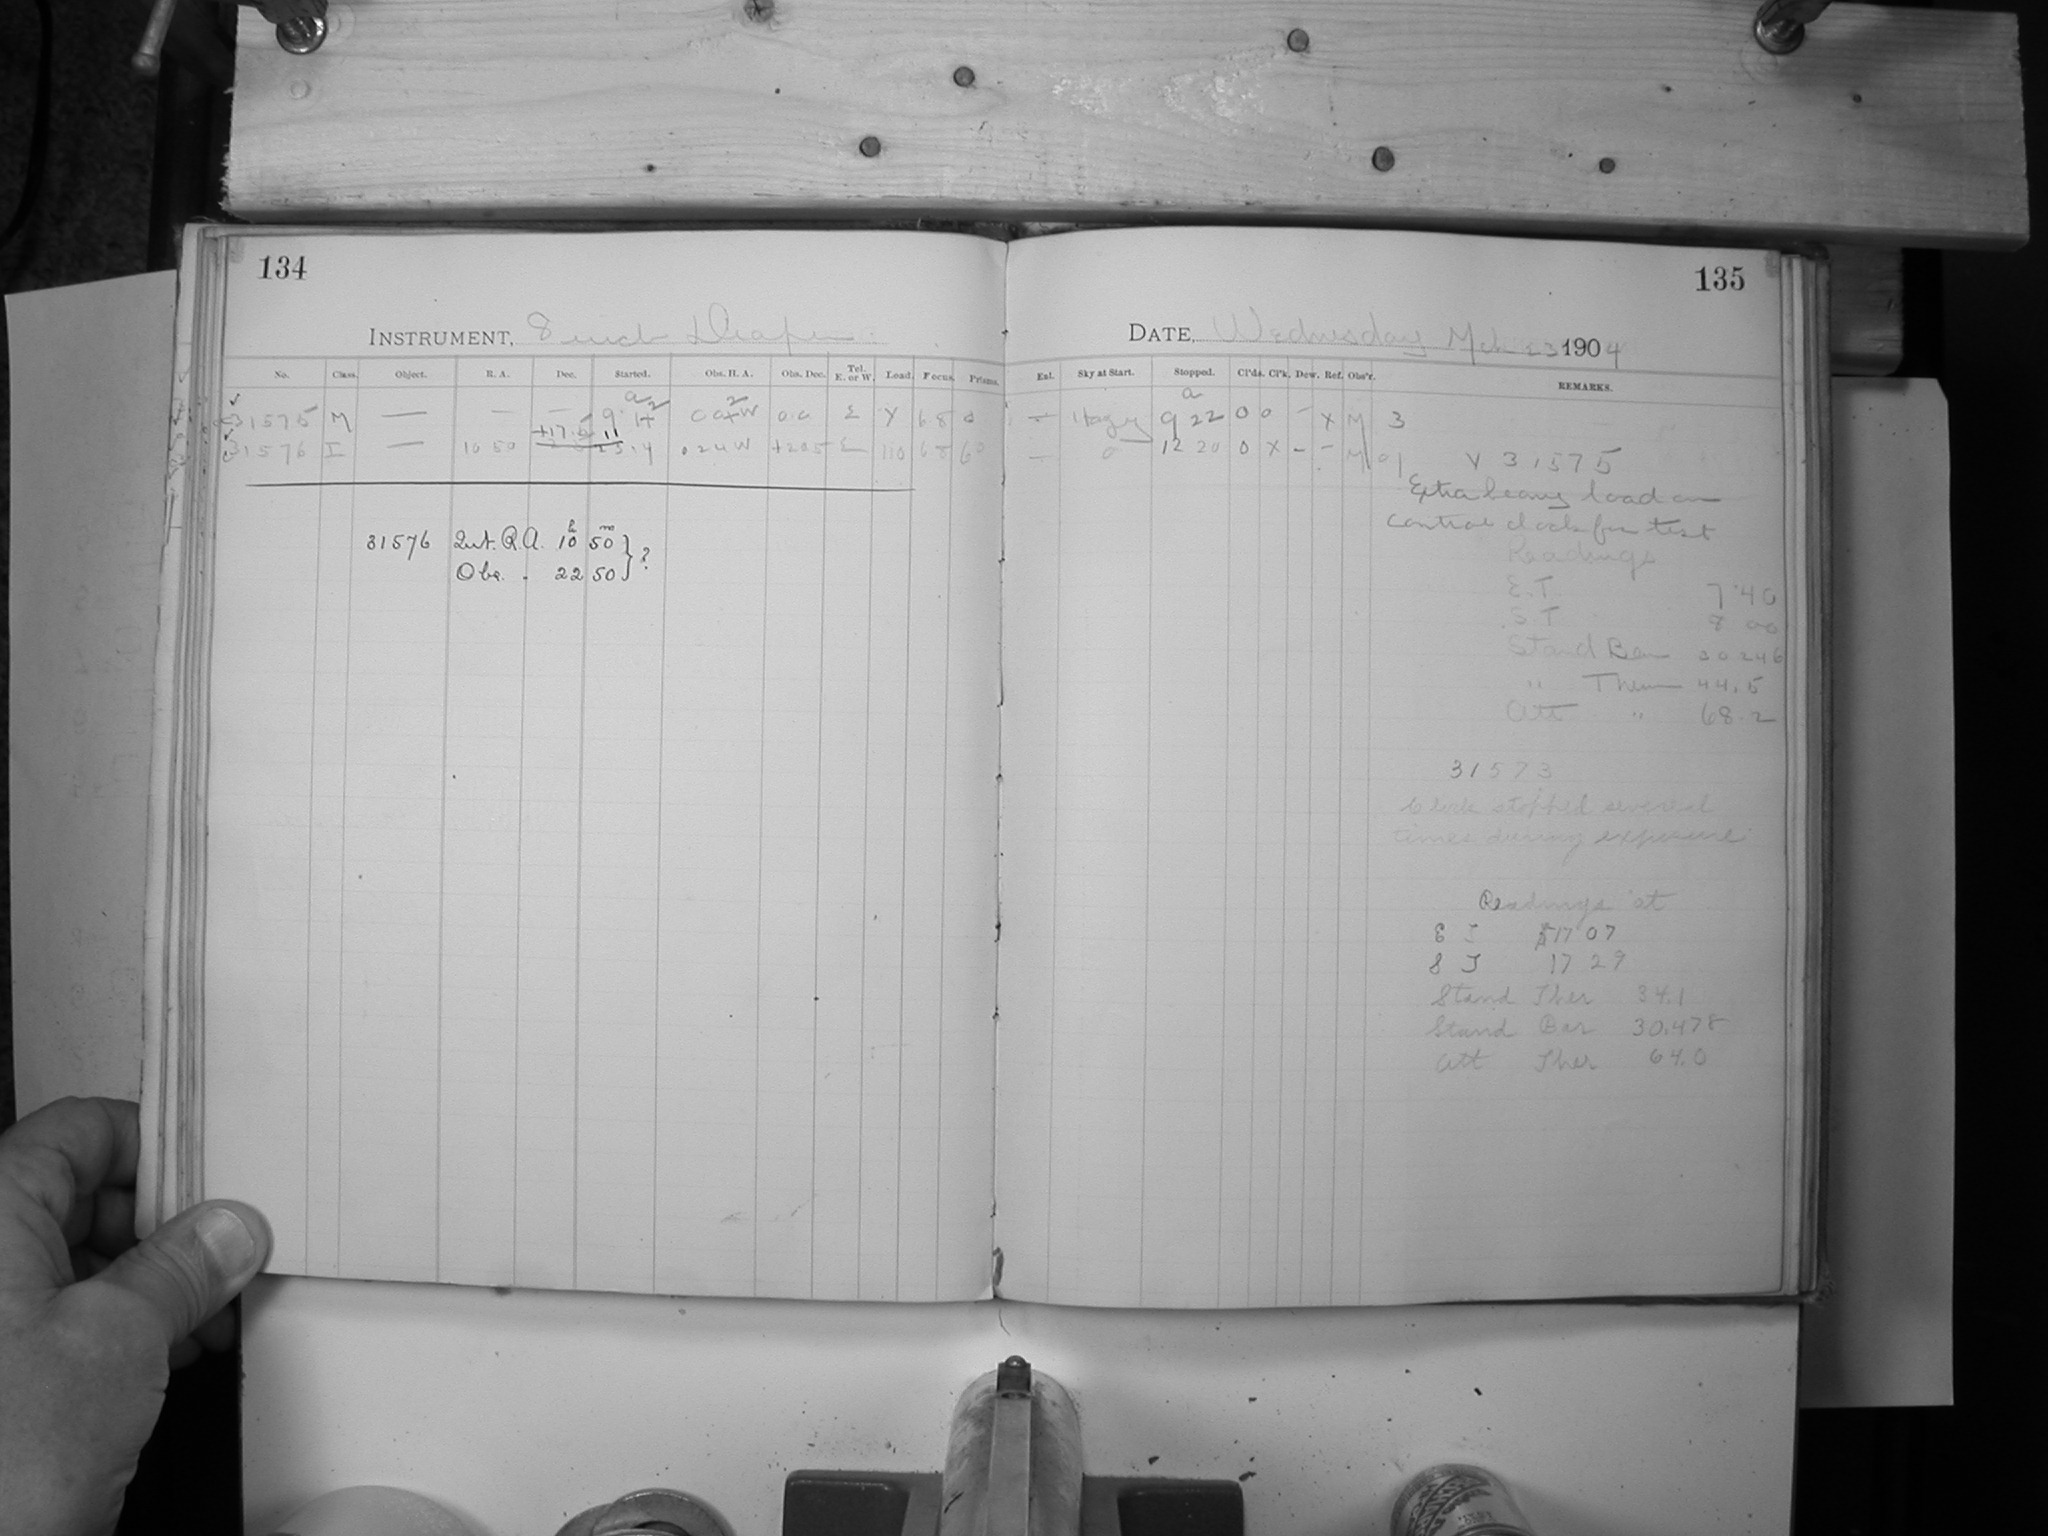 134
INSTRUMENT, 8 inch Draper
No. Class. Object. R. A. Dec. Started. Obs. H. A. Obs. Dec. Tel. E. or W. Load. Focus. Prisms.
31575 M — — — 9 E Y 6.8 0
31576 I — 10 50 +17.5 11 0 24 W +20.5 E 110 6.8
31576 Int. R.A. 10h 50m } ?
Obs. " 22 50
135
DATE, Wednesday Mch 23 1904
Ext. Sky at Start. Stopped. Cl'ds. Cl'k. Dew. Ref. Obs'r. REMARKS.
— Hazy 9 22 0 0 – X M 3
— 0 12 20 0 X – – M
31575
Extra heavy load on
control clock for test
Readings
E.T. 7 40
S.T 8 00
Stand Bar 30 246
" Ther 44.5
Att " 68.2
31573
Clock stopped several
times during exposure
Readings at
E T 17 07
S T 17 29
Stand Ther 34.1
Stand Bar 30.478
Att Ther 64.0